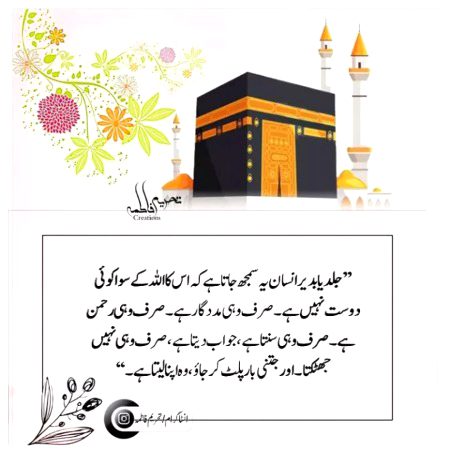 تحریم فاطمہ
Creations
”جلد یا بدیر انسان یہ سمجھ جاتا ہے کہ اس کا اللہ کے سوا کوئی
دوست نہیں ہے۔ صرف وہی مددگار ہے۔ صرف وہی رحمن
ہے۔ صرف وہی سنتا ہے، جواب دیتا ہے، صرف وہی نہیں
جھٹکتا۔ اور جتنی بار پلٹ کر جاؤ، وہ اپنا لیتا ہے۔“
انسٹاگرام/تحریم فاطمہ